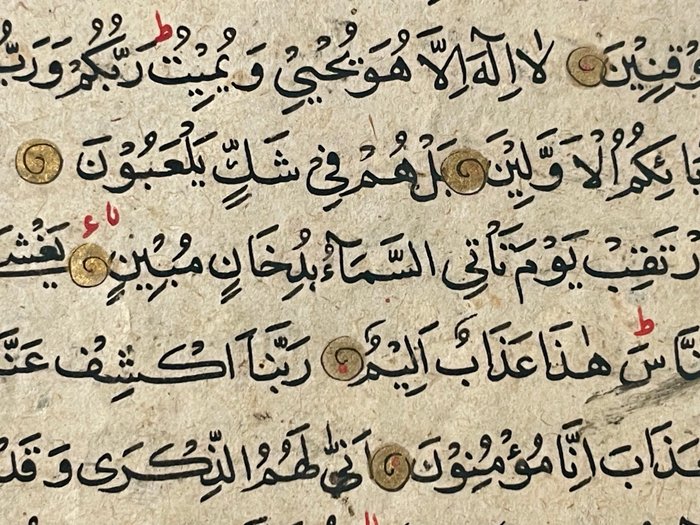 وْقِنِيْنَ لَا اِلٰهَ اِلَّا هُوَ يُحْيِيْ وَ يُمِيْتُ ط رَبُّكُمْ وَرَبُّ
بَائِكُمُ الْاَوَّلِيْنَ بَلْ هُمْ فِيْ شَكٍّ يَلْعَبُوْنَ
رْتَقِبْ يَوْمَ تَأْتِي السَّمَآءُ بِدُخَانٍ مُبِيْنٍ يَغْشَى
نَّاسَ ط هٰذَا عَذَابٌ اَلِيْمٌ رَبَّنَا اكْشِفْ عَنَّا
عَذَابَ اِنَّا مُؤْمِنُوْنَ اَنّٰى لَهُمُ الذِّكْرَى وَ قَدْ